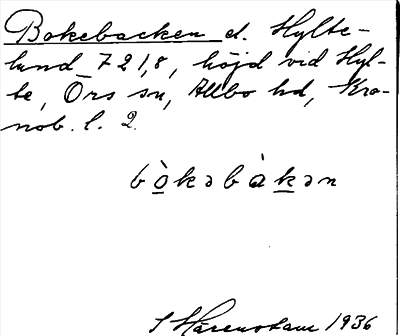 Bokebacken el. Hylte-
lund 721,8, höjd vid Hyl-
te, Örs sn, Allbo hd, Kro-
nob. l. 2.
bò̲kəbàk̲ən
S Härenstam 1936